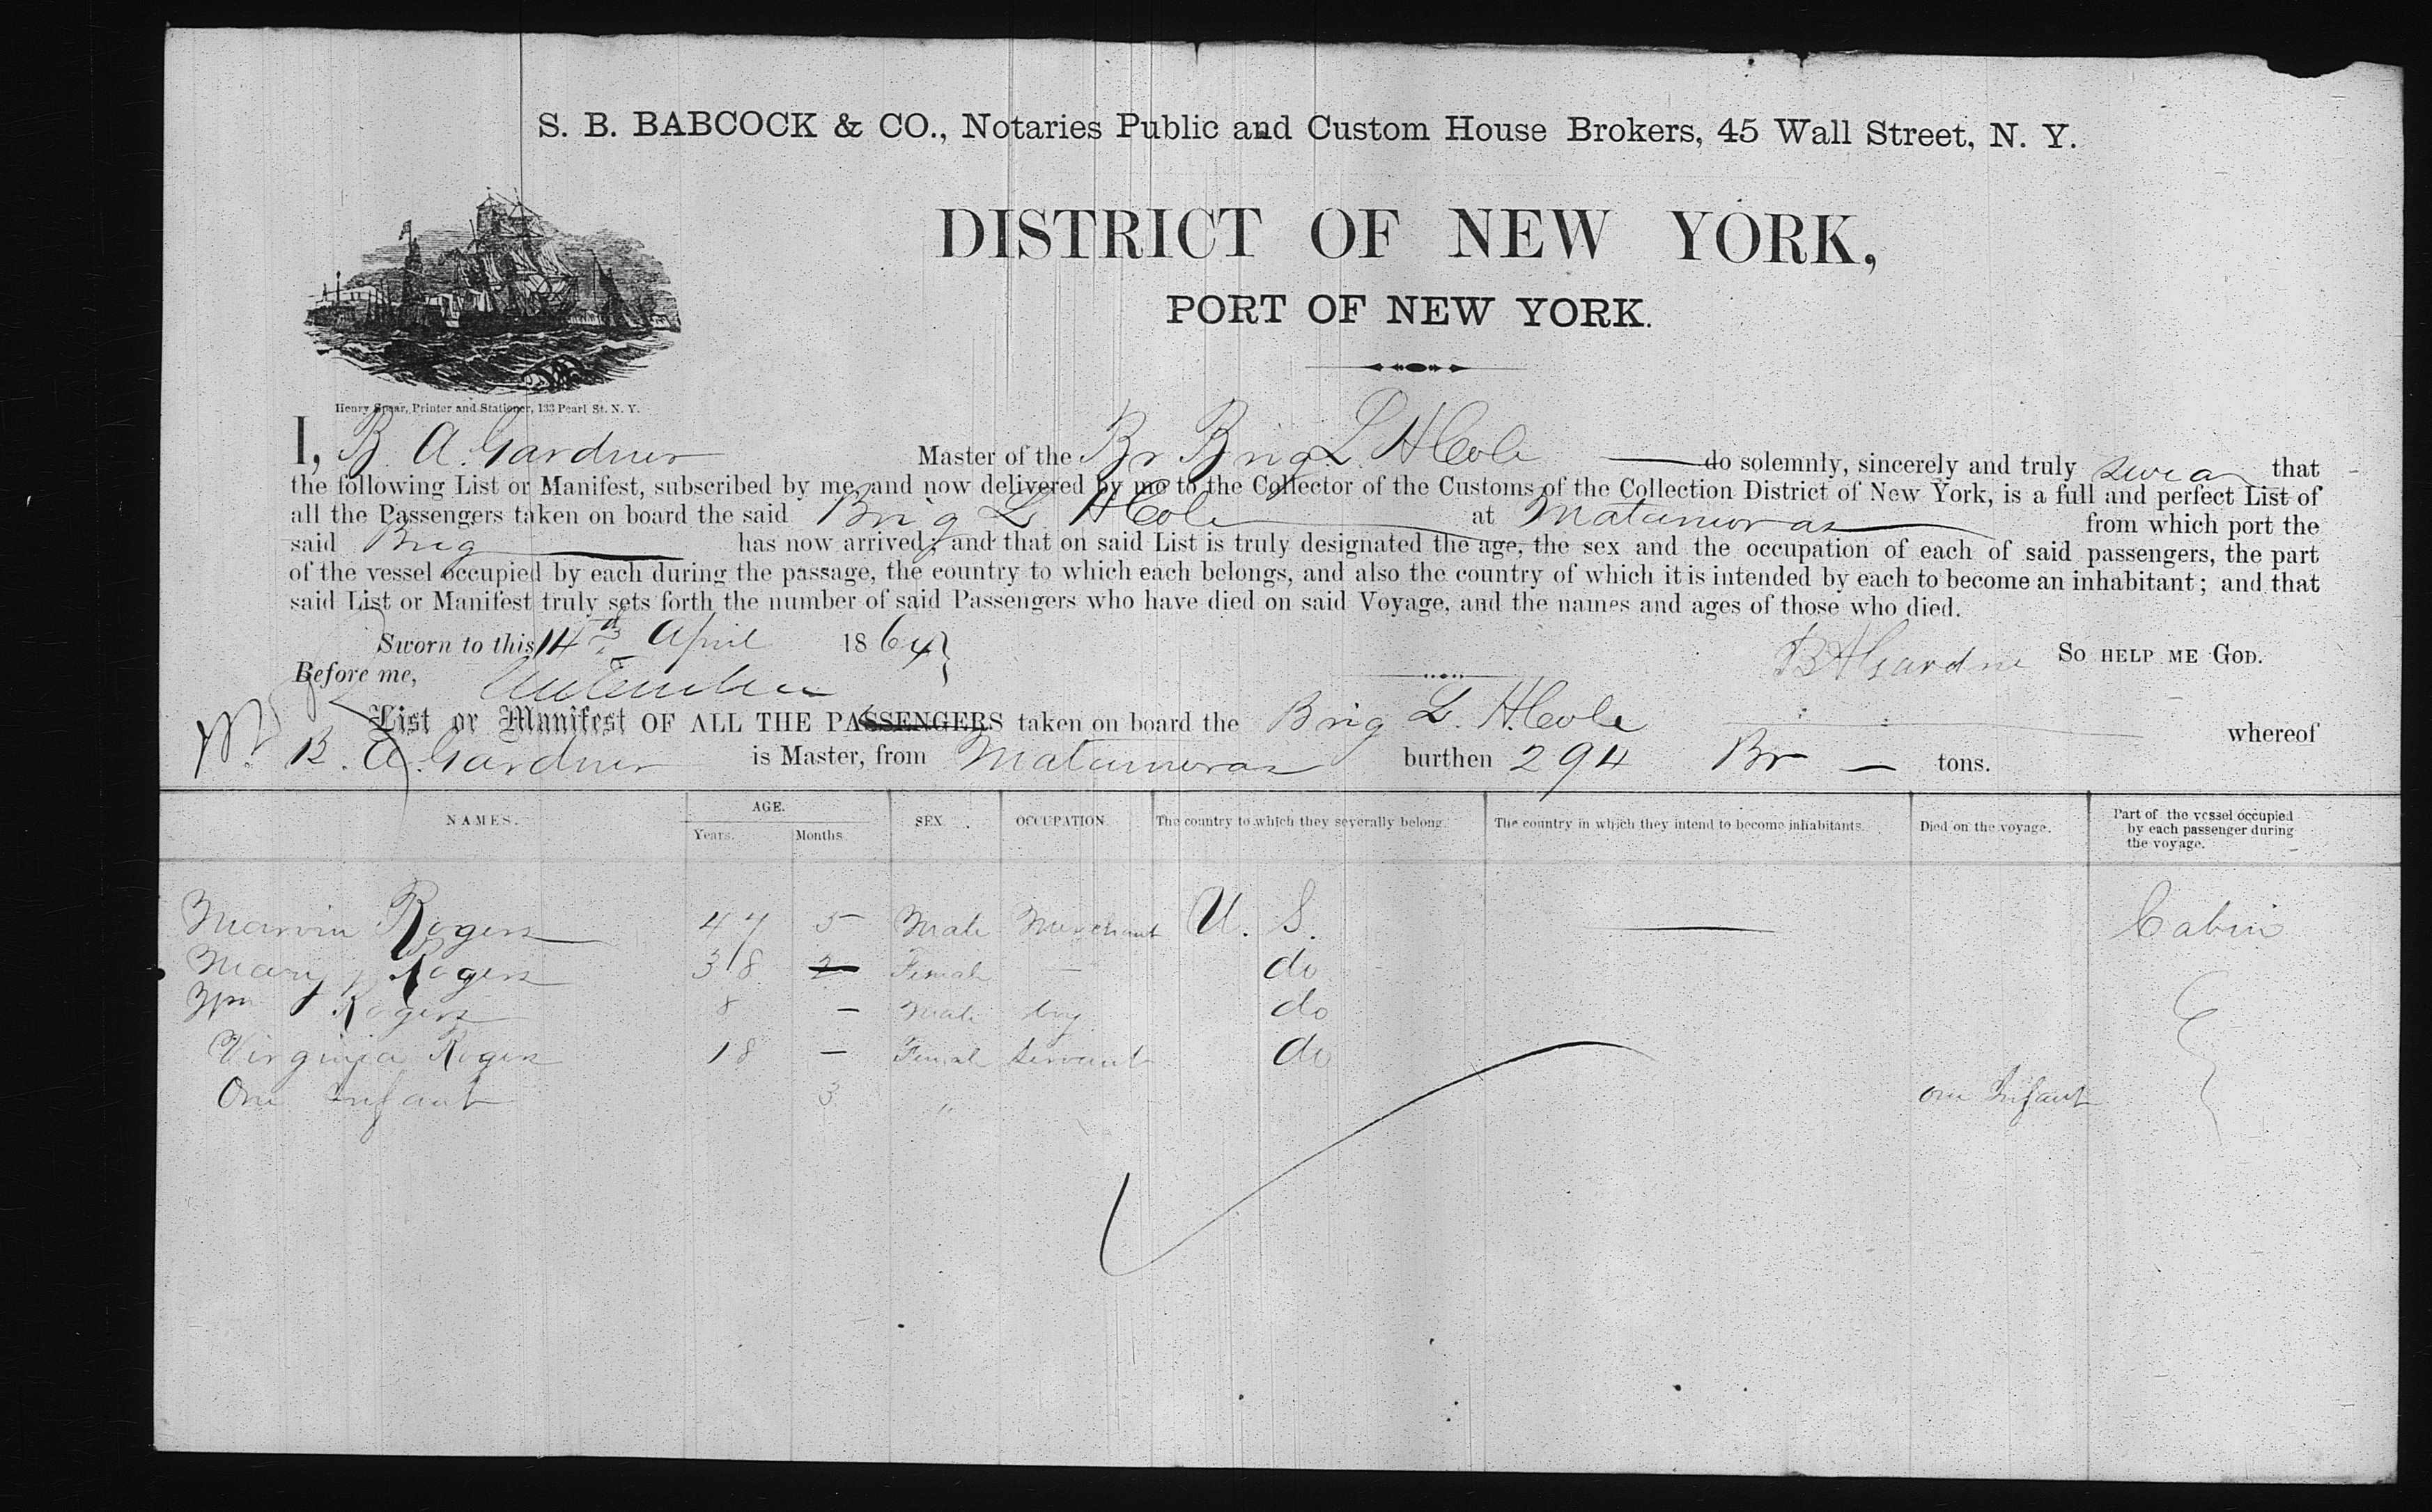 S. B. BABCOCK & CO., Notaries Public and Custom House Brokers, 45 Wall Street, N. Y.
DISTRICT OF NEW YORK,
PORT OF NEW YORK.
Henry Spear, Printer and Stationer, 133 Pearl St. N. Y.
I, B. A. Gardner Master of the Br Brig L. H Cole do solemnly, sincerely and truly swear that
the following List or Manifest, subscribed by me and now delivered by me to the Collector of the Customs of the Collection District of New York, is a full and perfect List of
all the Passengers taken on board the said Brig L H Cole at Matamoras from which port the
said Brig has now arrived; and that on said List is truly designated the age, the sex and the occupation of each of said passengers, the part
of the vessel occupied by each during the passage, the country to which each belongs, and also the country of which it is intended by each to become an inhabitant; and that
said List or Manifest truly sets forth the number of said Passengers who have died on said Voyage, and the names and ages of those who died.
Sworn to this 14th April 1864 } B A Gardner SO HELP ME GOD.
Before me,
List or Manifest OF ALL THE PASSENGERS taken on board the Brig L. H. Cole whereof
B. A. Gardner is Master, from Matamoras burthen 294 Br — tons.
NAMES. AGE. Years. Months. SEX. OCCUPATION. The country to which they severally belong. The country in which they intend to become inhabitants. Died on the voyage. Part of the vessel occupied by each passenger during the voyage.
Marvin Rogers 47 5 Male Merchant U. S. — Cabin
Mary Rogers 38 2 Femal — do
Wm Rogers 8 — Male boy do
Virginia Rogers 18 — Femal Servant do
One Infant 3 " one Infant